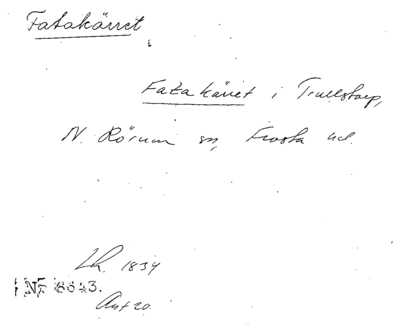 Fatakärret
Fatakärret i Trullstorp,
N. Rörum sn, Frosta hd.
Lh. 1834
NF 8643.
Ant 20.